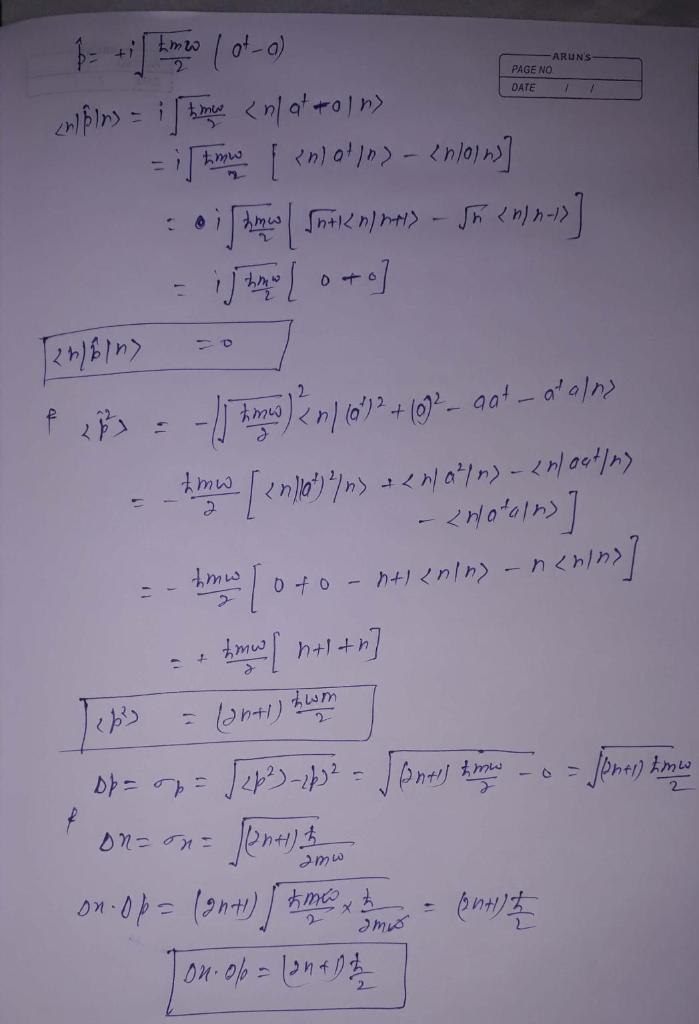 p̂ = +i √(ħmω/2) (a† - a)
ARUN'S
PAGE NO.
DATE / /
<n|p̂|n> = i √(ħmω/2) <n|a† - a|n>
= i √(ħmω/2) [ <n|a†|n> - <n|a|n> ]
= i √(ħmω/2) [ √n+1 <n|n+1> - √n <n|n-1> ]
= i √(ħmω/2) [ 0 + 0 ]
<n|p̂|n> = 0
& <p̂²> = -(√(ħmω/2))² <n| (a†)² + (a)² - aa† - a†a |n>
= - ħmω/2 [ <n|(a†)²|n> + <n|a²|n> - <n|aa†|n>
- <n|a†a|n> ]
= - ħmω/2 [ 0 + 0 - n+1 <n|n> - n <n|n> ]
= + ħmω/2 [ n+1+n ]
<p²> = (2n+1) ħωm/2
Dp = σp = √(<p²> - <p>²) = √((2n+1) ħmω/2 - 0) = √((2n+1) ħmω/2)
& Dx = σx = √((2n+1) ħ/2mω)
Dx·Dp = (2n+1) √(ħmω/2 × ħ/2mω) = (2n+1) ħ/2
Dx·Dp = (2n+1) ħ/2